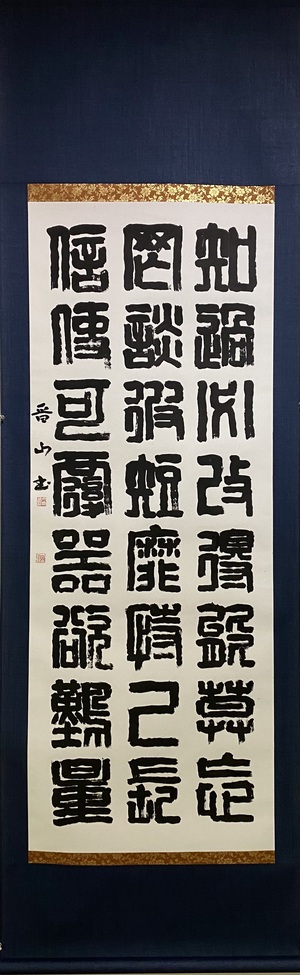 知過必改得能莫忘
罔談彼短靡恃己長
信使可覆器欲難量
山書